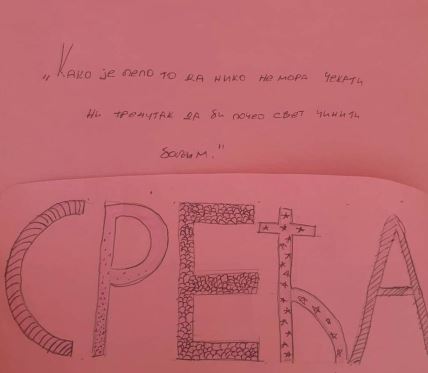 „Како је лепо то да нико не мора чекати
ни тренутак да би почео свет чинити
бољим."
СРЕЋА